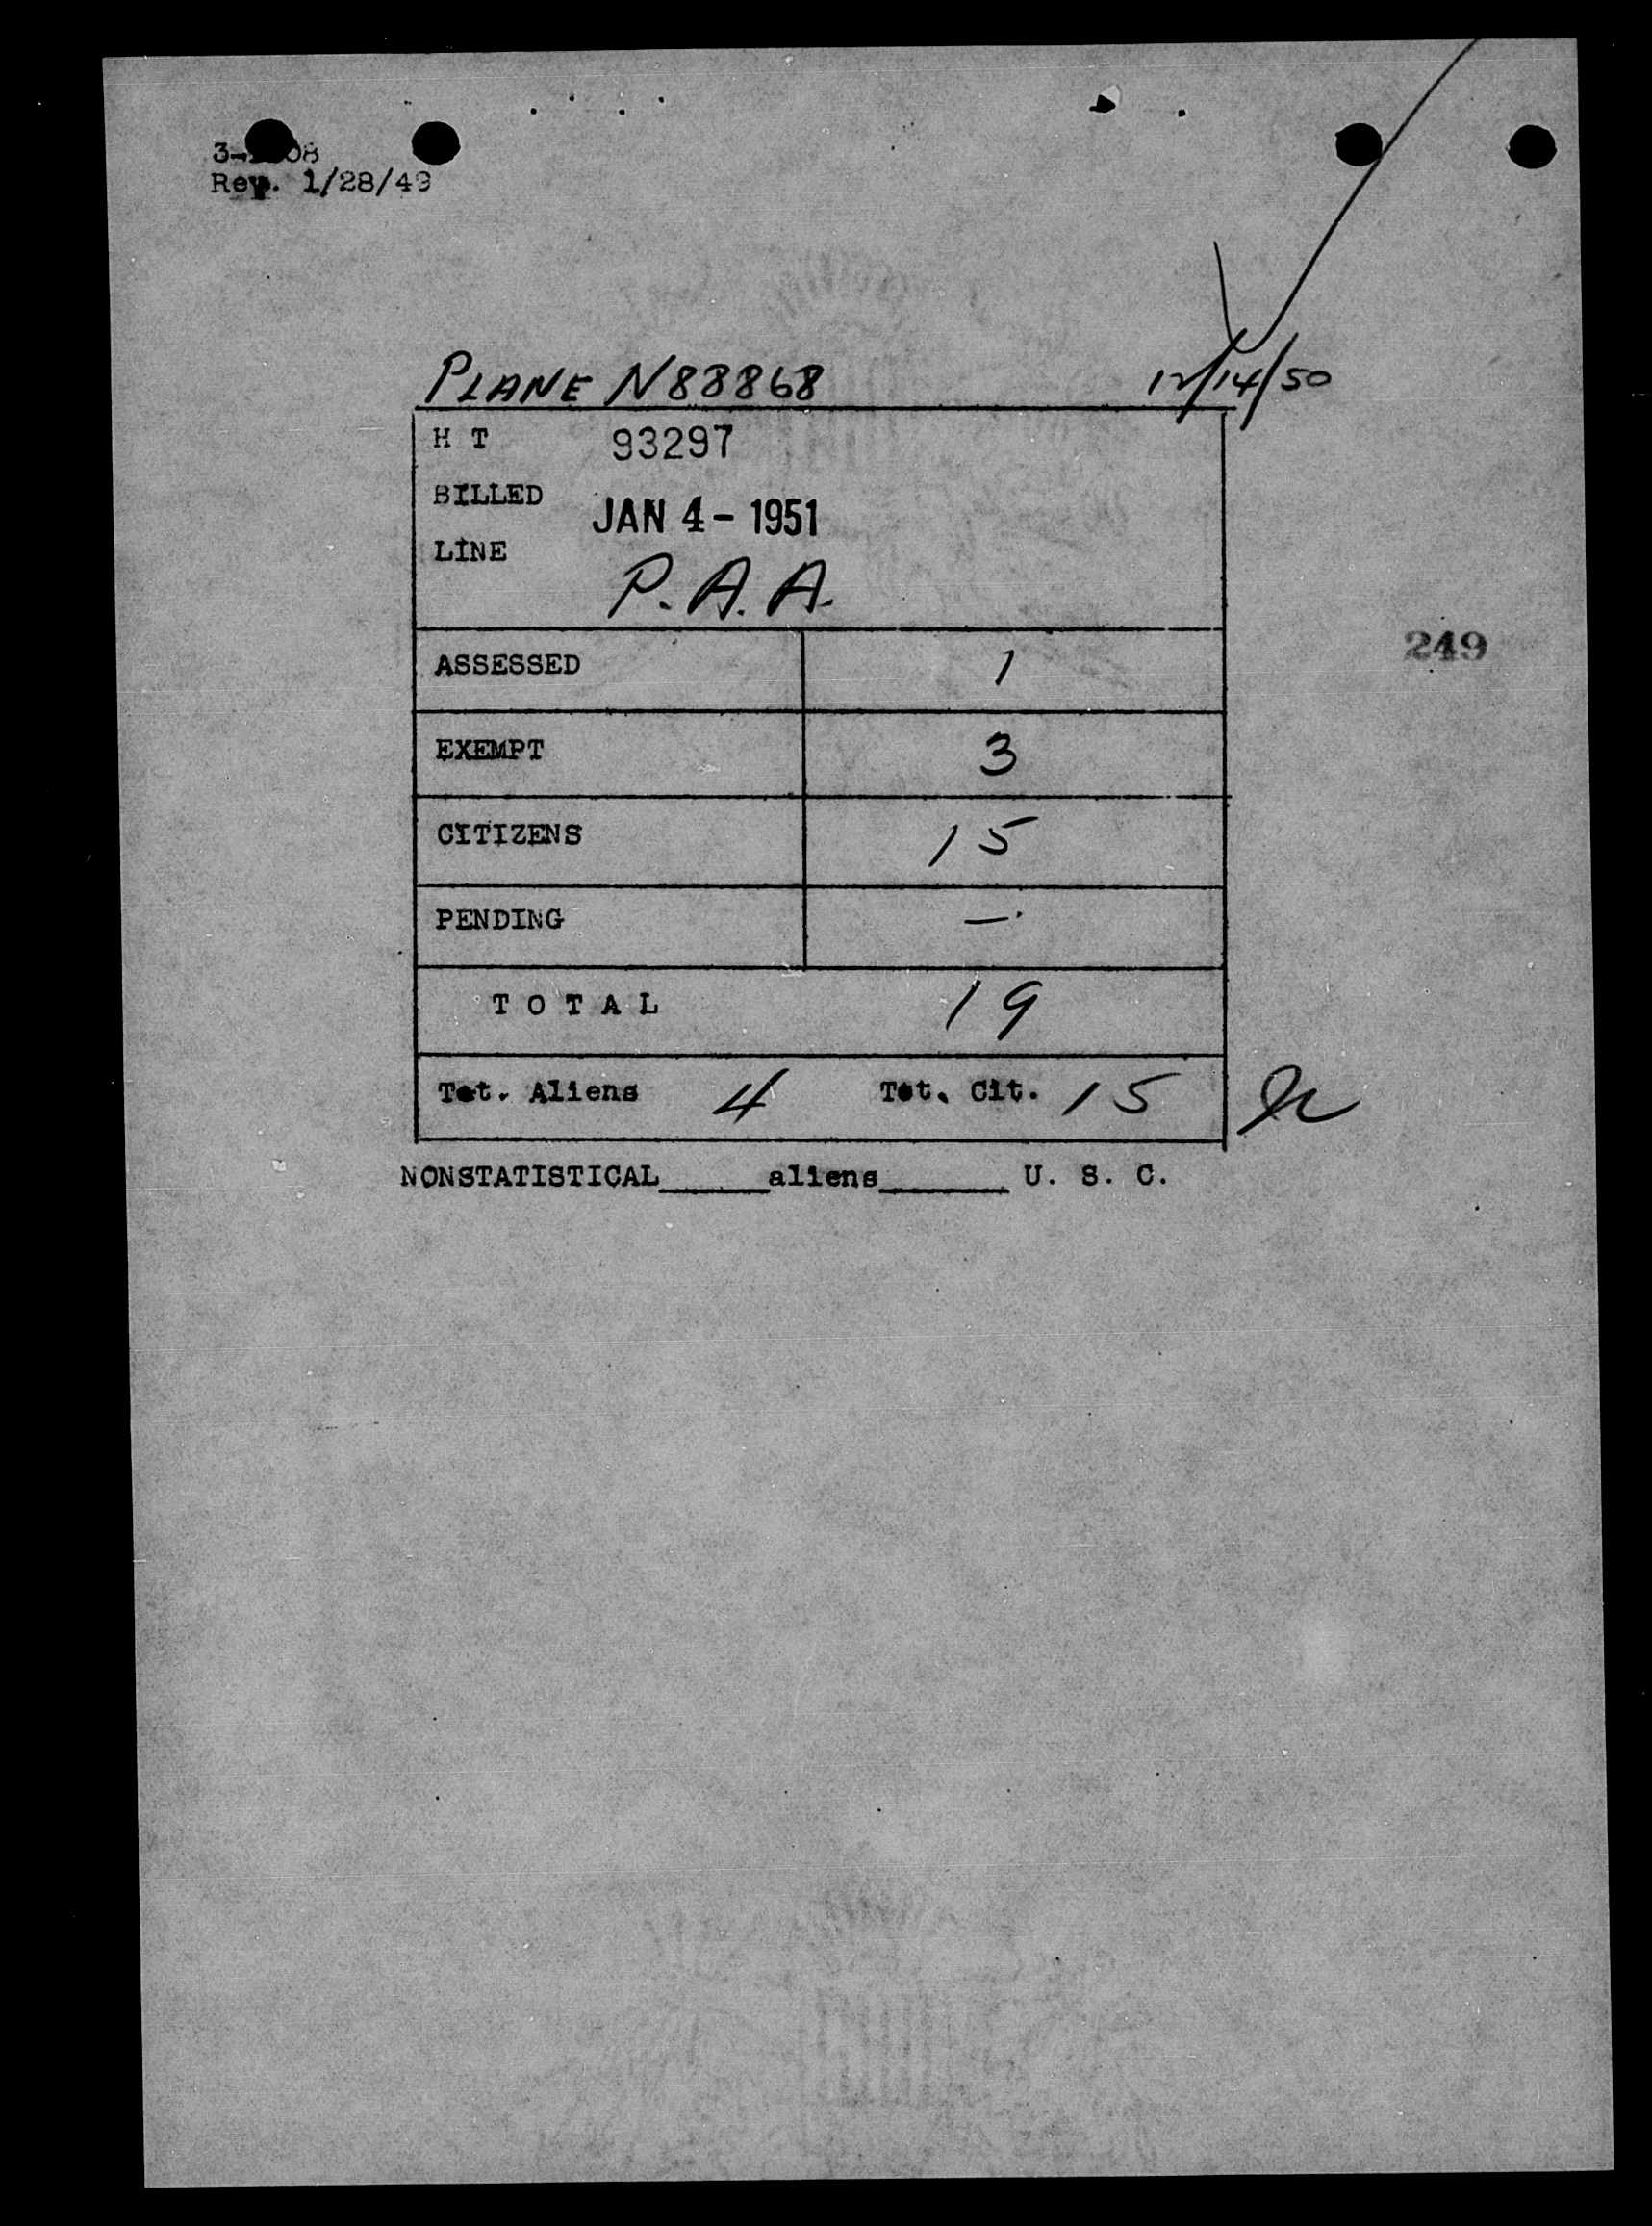 Rev. 1/28/49
PLANE N88868 12/14/50
H T 93297
BILLED
JAN 4 - 1951
LINE
P.A.A.
249
ASSESSED 1
EXEMPT 3
CITIZENS 15
PENDING —
T O T A L 19
Tot. Aliens 4 Tot. Cit. 15
NONSTATISTICAL______aliens_______ U. S. C.